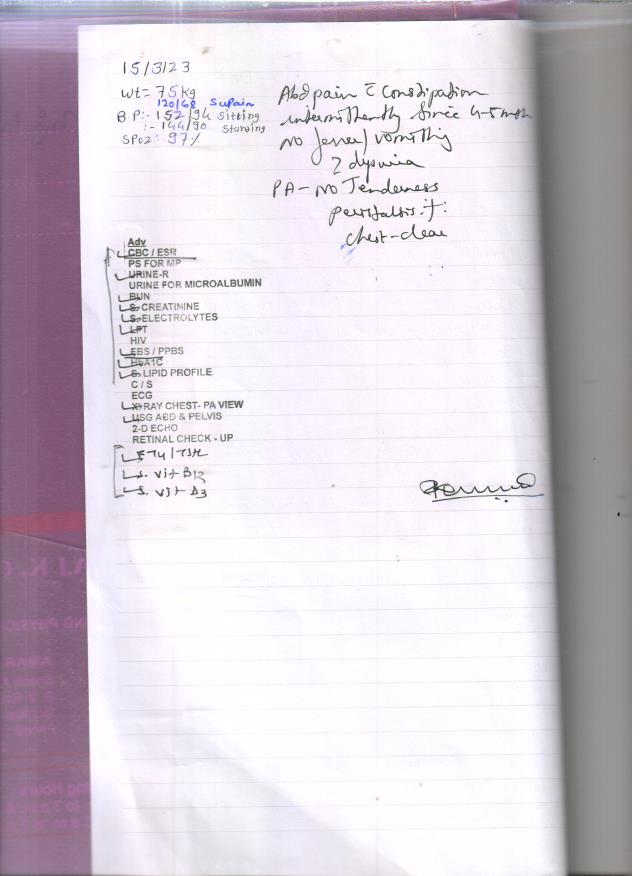 15/3/23
Wt= 75 Kg
120/68 Supain
B.P:- 152/94 Sitting
:- 144/90 Standing
SPO2: 97%
Abd pain c̄ Constipation
intermittently since 4-5 mth
No fever/vomiting
dysuria
PA - No Tenderness
peristalsis +
chest - clear
Adv
CBC / ESR
PS FOR MP
URINE-R
URINE FOR MICROALBUMIN
BUN
S. CREATININE
S. ELECTROLYTES
LFT
HIV
FBS / PPBS
HbA1C
S. LIPID PROFILE
C / S
ECG
X-RAY CHEST- PA VIEW
USG ABD & PELVIS
2-D ECHO
RETINAL CHECK - UP
FT4 / TSH
S. Vit B12
S. Vit D3